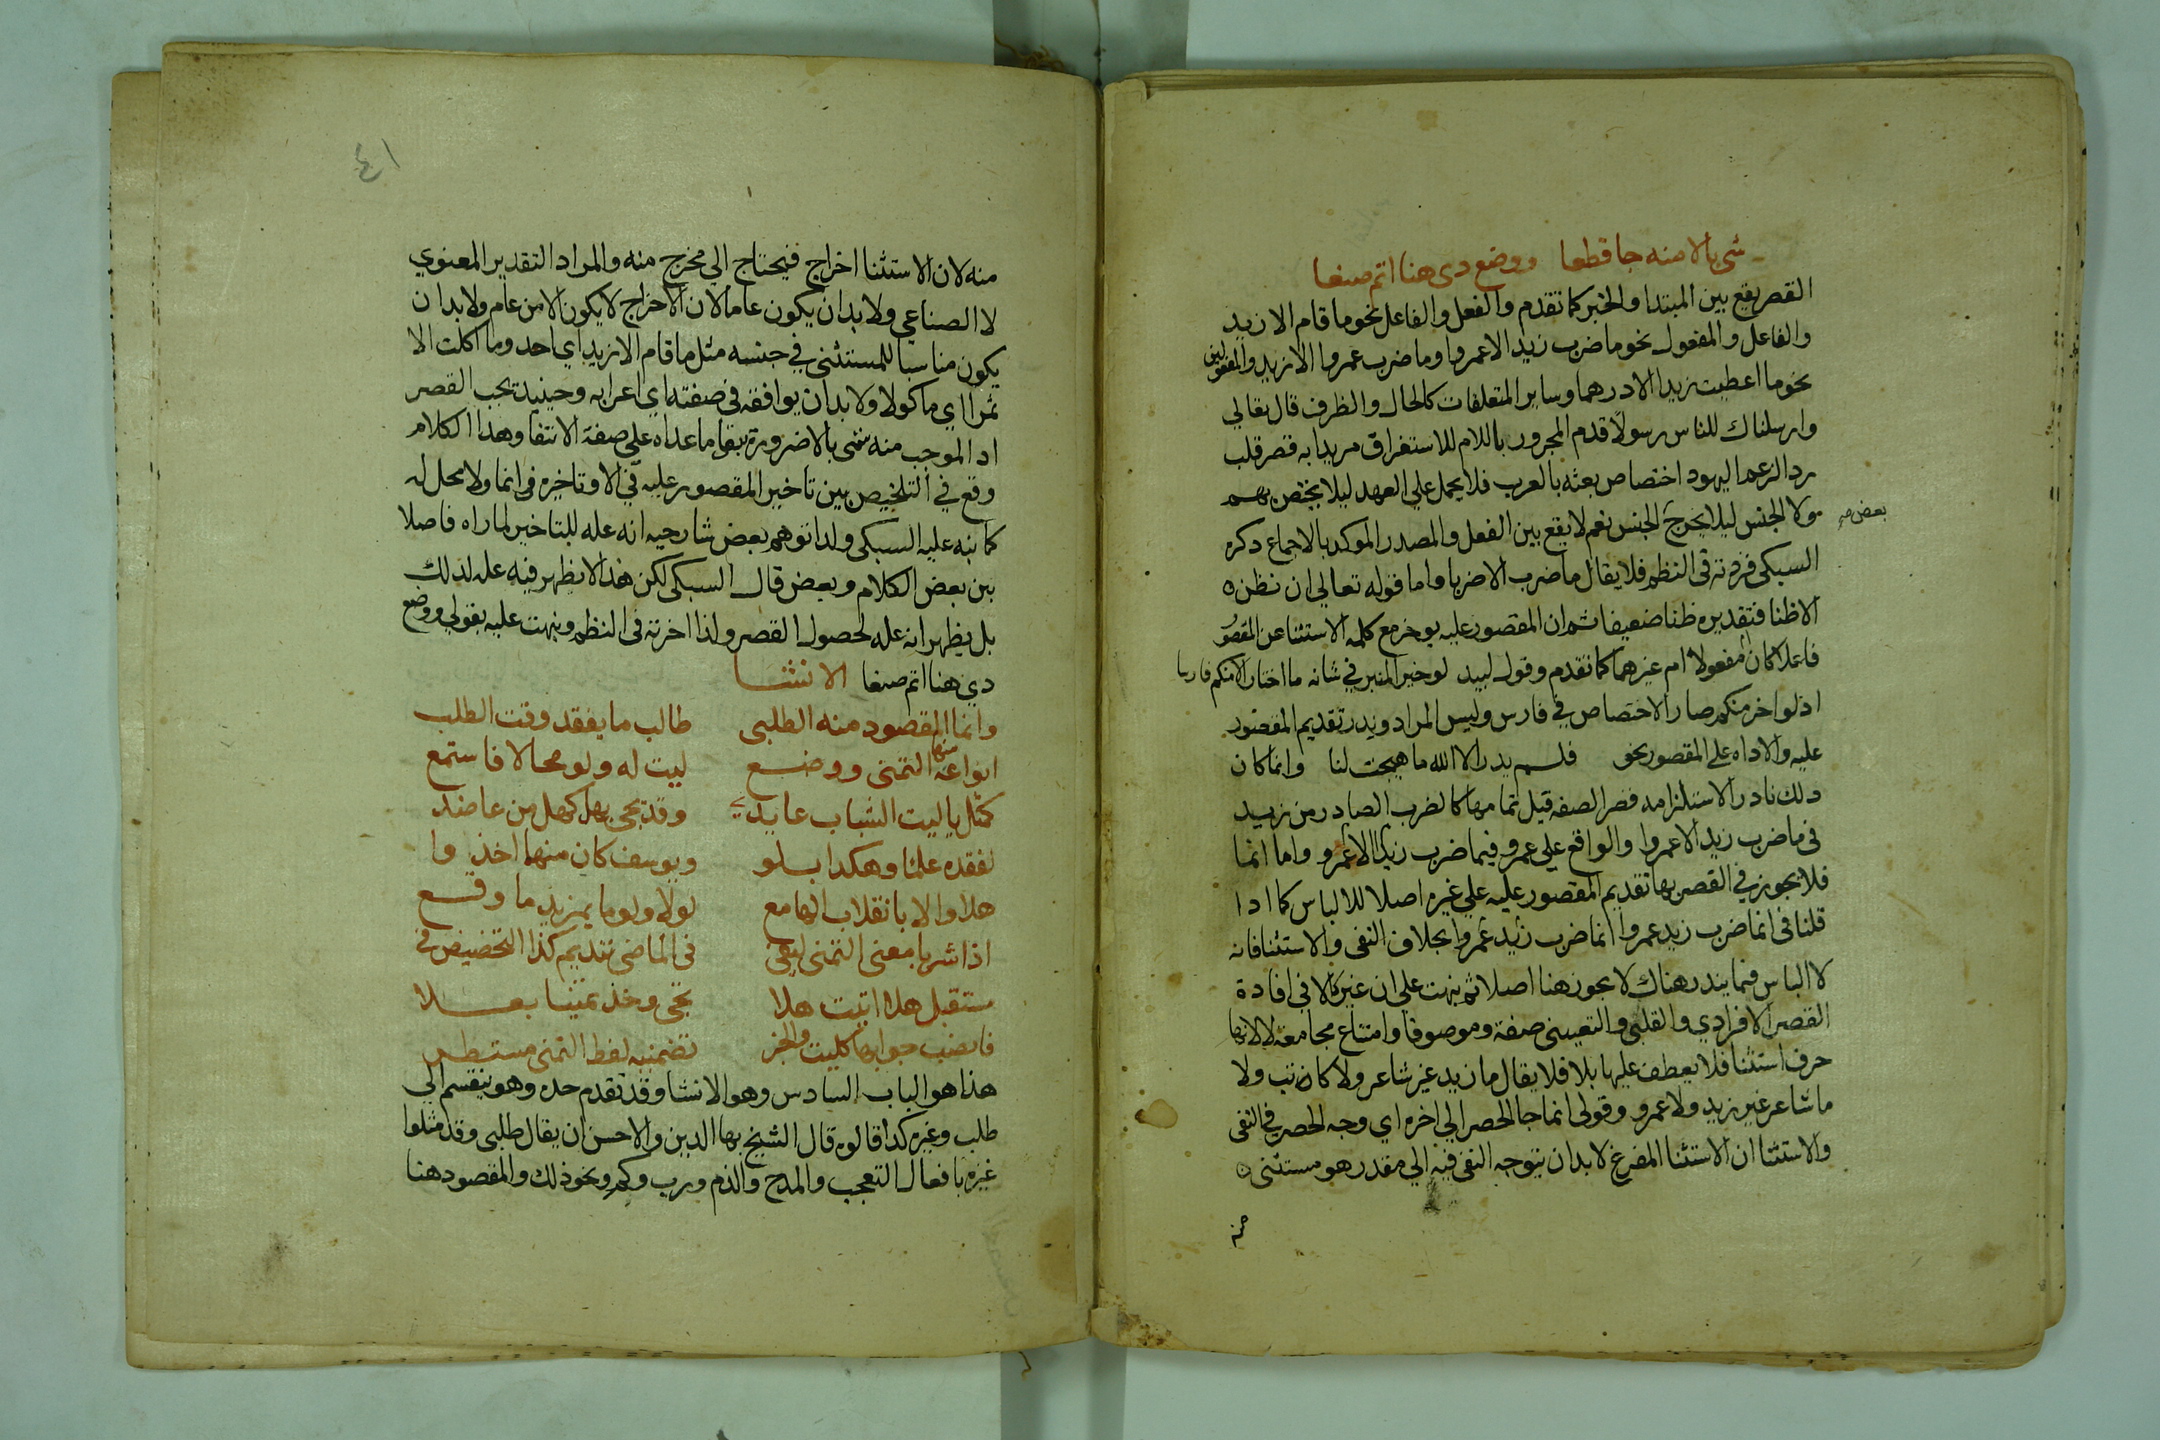 شي بالا منه جا قطعا ووضع دي هنا اتم صنعا
القصر يقع بين المبتدا والخبر كما تقدم والفعل والفاعل نحو ما قام الا زيد
والفاعل والمفعول نحو ما ضرب زيد الا عمروا وما ضرب عمروا الا زيد والمفعولين
نحو ما اعطيت زيدا الا درهما وساير المتعلقات كالحال والظرف قال تعالي
وارسلناك للناس رسولا قدم المجرور باللام للاستغراق مريدا به قصر قلب
رد الزعم اليهود اختصاص بعثه بالعرب فلا يحمل علي العهد ليلا يختص بهم
بعض صح
ولا الجنس ليلا يخرج الجنس نعم لا يقع بين الفعل والمصدر الموكد بالاجماع دكره
السبكي فزدته في النظم فلا يقال ما ضرب الا ضربا واما قوله تعالي ان نظن
الا ظنا فتقديره ظنا ضعيفا ثم ان المقصور عليه يوخر مع كلمه الاستثنا عن المقصور
فاعلا كان مفعولا ام غيرهما كما تقدم وقول لبيد لو خير المنبر في شانه ما اختار الا منكم فارسا
اذ لو اخر منكم صار الاختصاص في فارس وليس المراد ويندر تقديم المقصور
عليه والاداه علي المقصور نحو فلم يدر الا الله ما هيجت لنا وانما كان
دلك نادرا لاستلزامه قصر الصفه قبل تمامها كالضرب الصادر من زيد
في ما ضرب زيد الا عمروا والواقع علي عمرو فيما ضرب زيدا الا عمرو واما انما
فلا يجوز في القصر بها تقديم المقصور عليه علي غيره اصلا للالباس كما ادا
قلنا في انما ضرب زيد عمروا انما ضرب زيد عمروا بخلاف النفي والاستثنا فانه
لا الباس فيما يندر هناك لا يجوز هنا اصلا ثم نبهت علي ان غير كالا في افادة
القصر الافرادي والقلبي والتعييني صفة وموصوفا وامتناع مجامعة لا لانها
حرف استثنا فلا يعطف عليها بلا فلا يقال ما زيد غير شاعر ولا كاتب ولا
ما شاعر غير زيد ولا عمرو وقولي انما جا الحصر الي اخره اي وجه الحصر في النفي
والاستثنا ان الاستثنا المفرغ لا بد ان يتوجه النفي فيه الي مقدر هو مستثني
منه
٤١
منه لان الاستثنا اخراج فيحتاج الي مخرج منه والمراد التقدير المعنوي
لا الصناعي ولا بد ان يكون عاما لان الاخراج لا يكون الا من عام ولا بد ان
يكون مناسبا للمستثني في جنسه مثل ما قام الا زيد اي احد وما اكلت الا
تمرا اي ماكولا ولا بد ان يوافقه في صفته اي اعرابه وحينيد يجب القصر
اد الموجب منه شي بالا ضرورة بقا ما عداه علي صفة الانتفا وهذا الكلام
وقع في التلخيص بين تاخير المقصور عليه في الا وتاخيره في انما ولا محل له
كما نبه عليه السبكي ولدا توهم بعض شارحيه انه عله للتاخير لما راه فاصلا
بين بعض الكلام وبعض قال السبكي لكن هذا لا يظهر فيه عله لدلك
بل يظهر انه عله لحصول القصر ولذا اخرته في النظم ونبهت عليه بقولي ووضع
دي هنا اتم صنعا الانشا
وانما المقصود منه الطلبي طالب ما يفقد وقت الطلب
انواعه منها التمني ووضع ليت له ولو محالا فاستمع
كمثل يا ليت الشباب عايد وقد يجي بهل كهل من عاضد
لفقده علما وهكدا بلو ويوسف كان منها اخذوا
هلا والا بانقلاب الها مع لولا ولوما بمزيد ما وقع
اذ اشربا معني التمني ليفي في الماضي تنديم كذا التحضيض في
مستقبل هلا اتيت هلا تجي وخذ تمنيا بعلا
فانصب جوابها كليت والخبر تضمنيه لفظ التمني مستطر
هذا هو الباب السادس وهو الانشا وقد تقدم حده وهو ينقسم الي
طلب وغيره كدا قالوه قال الشيخ بها الدين والاحسن ان يقال طلبي وقد مثلوا
غيره بافعال التعجب والمدح والذم ورب وكم ونحو ذلك والمقصود هنا